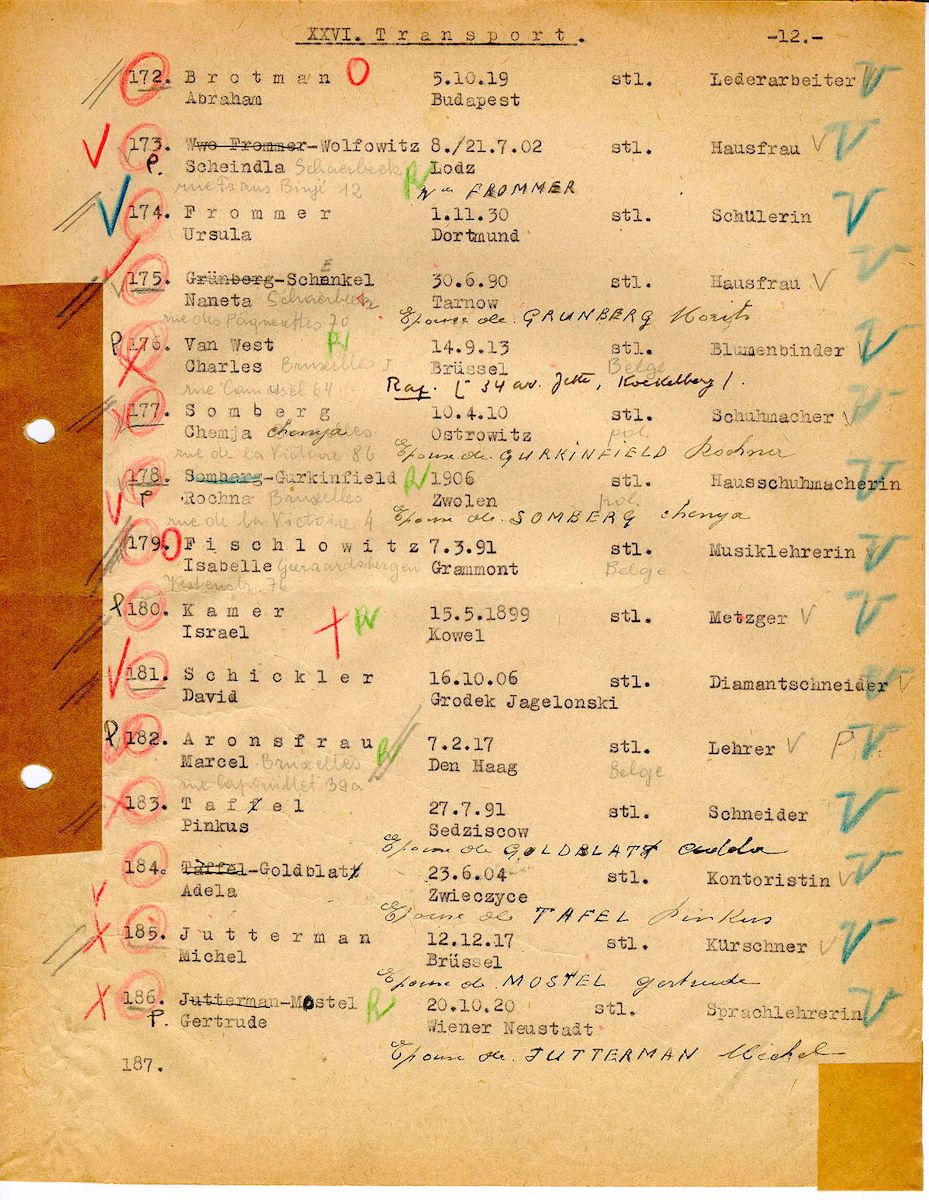 XXVI. Transport. -12.-
172. Brotman 5.10.19 stl. Lederarbeiter
Abraham Budapest
173. Wwo Frommer-Wolfowitz 8./21.7.02 stl. Hausfrau
P. Scheindla Schaerbeek Lodz
rue Frans Binjé 12 Wve FROMMER
174. Frommer 1.11.30 stl. Schülerin
Ursula Dortmund
175. Grünberg-Schenkel E 30.6.90 stl. Hausfrau
Naneta Schaerbeek Tarnow
rue des Pâquerettes 70 Epouse de GRUNBERG Moritz
P 176. Van West 14.9.13 stl. Blumenbinder
Charles Bruxelles Brüssel Belge
64 Raf. 34 av. Jette, Koekelberg
177. Somberg 10.4.10 stl. Schuhmacher
Chemja chemja Ostrowitz pol.
rue de la Victoire 86 Epouse de GURKINFIELD Rochner
178. Somberg-Gurkinfield 1906 stl. Hausschuhmacherin
P Rochna Bruxelles Zwolen pol.
rue de la Victoire 4 Epouse de SOMBERG chemja
179. Fischlowitz 7.3.91 stl. Musiklehrerin
Isabelle Geraardsbergen Grammont Belge
76
P 180. Kamer 15.5.1899 stl. Metzger
Israel Kowel
181. Schickler 16.10.06 stl. Diamantschneider
David Grodek Jagelonski
P 182. Aronsfrau 7.2.17 stl. Lehrer P
Marcel Bruxelles Den Haag Belge
rue Capouillet 39a
183. Taffel 27.7.91 stl. Schneider
Pinkus Sedziscow
Epouse de GOLDBLAT Adela
184. Taffel-Goldblatt 23.6.04 stl. Kontoristin
Adela Zwieczyce
Epouse de TAFEL Pinkus
185. Jutterman 12.12.17 stl. Kürschner
Michel Brüssel
Epouse de MOSTEL Gertrude
186. Jutterman-Mostel 20.10.20 stl. Sprachlehrerin
P. Gertrude Wiener Neustadt
187. Epouse de JUTTERMAN Michel